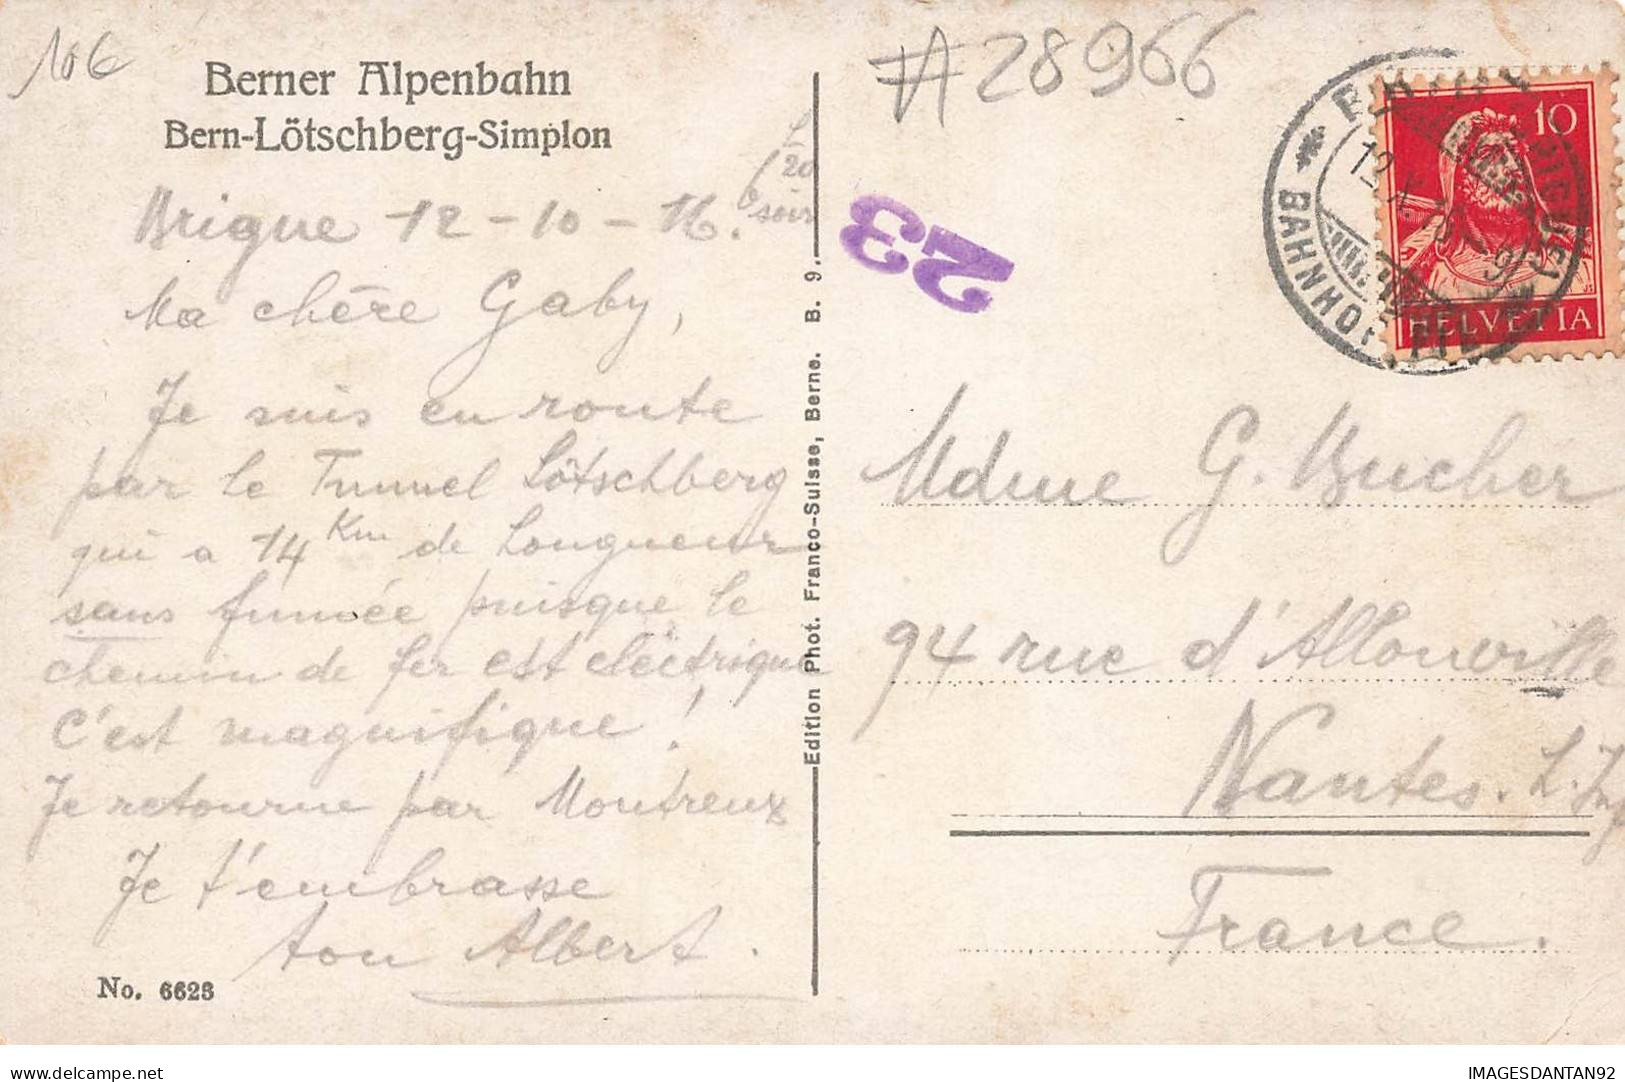 106
Berner Alpenbahn
Bern-Lötschberg-Simplon
Brigue 12-10-16. 20 soir
Ma chère Gaby,
Je suis en route
par le Tunnel Lötschberg
qui a 14 Km de Longueur
sans fumée puisque le
chemin de fer est électrique
C'est magnifique !
Je retourne par Montreux
Je t'embrasse
ton Albert.
No. 6628
Edition Phot. Franco-Suisse, Berne. B. 9.
#28966
23
BAHNHOF
12
10
HELVETIA
Mdme G. Bucher
94 rue d'Allonville
Nantes. L. Inf
France.
IMAGESDANTAN92